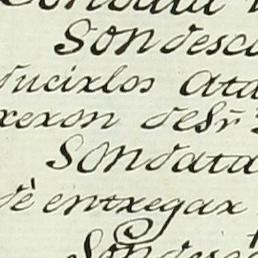 Son desc
ducirlos Ata
xeron de Sr.
Son data
dè entregar
Son desc